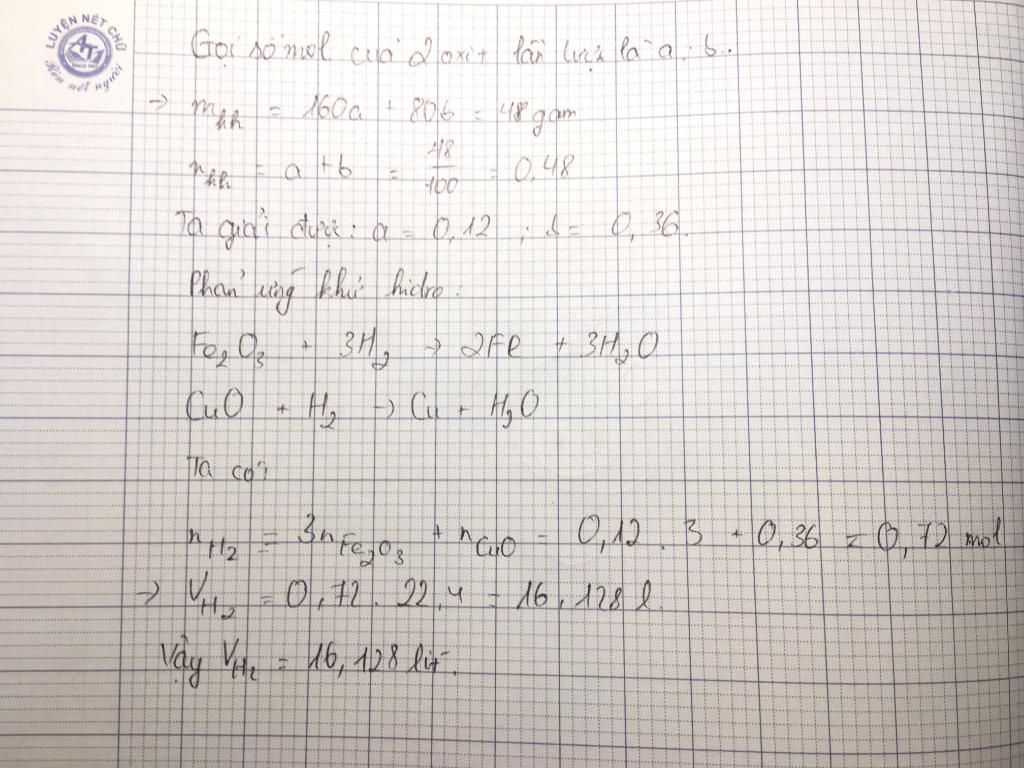 LUYỆN NÉT CHỮ
Rèn nết người
Gọi số mol của 2 oxit lần lượt là a, b.
→ mhh = 160a + 80b = 48 gam
nhh = a + b = 48/100 = 0,48
Ta giải được: a = 0,12 ; b = 0,36.
Phản ứng khử hidro:
Fe₂O₃ + 3H₂ → 2Fe + 3H₂O
CuO + H₂ → Cu + H₂O
Ta có:
nH₂ = 3nFe₂O₃ + nCuO = 0,12 . 3 + 0,36 = 0,72 mol
→ VH₂ = 0,72 . 22,4 = 16,128 l.
Vậy VH₂ = 16,128 lít.